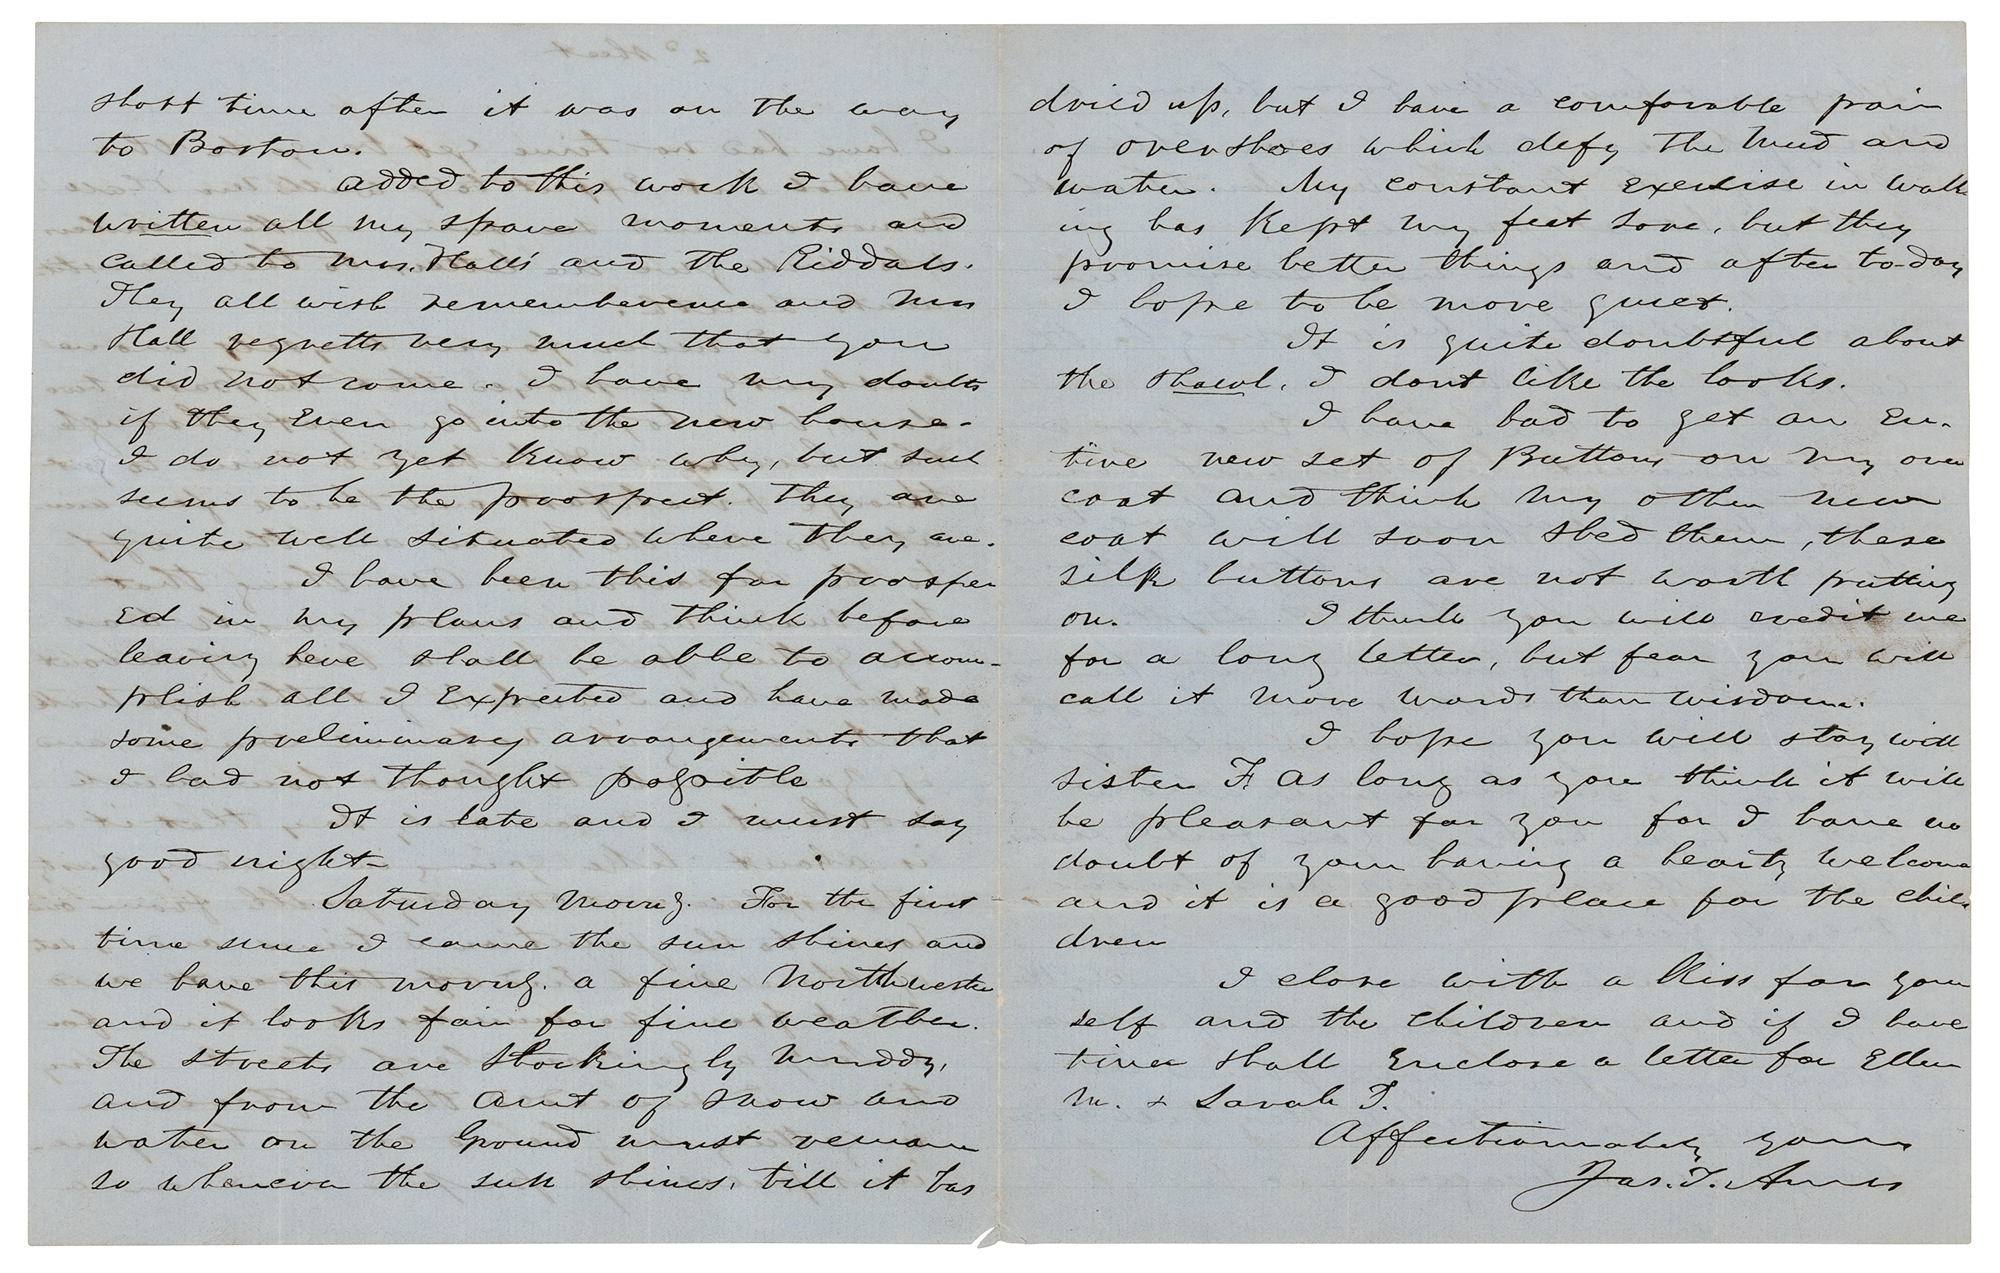 short time after it was on the way
to Boston.
added to this work I have
written all my spare moments and
called to Mrs. Hall's and the Riddals.
They all wish rememberence and Mrs
Hall regretts very much that you
did not come. I have my doubts
if they Ever go into the new house.
I do not yet Know why, but such
seems to be the prospect. They are
quite well situated where they are.
I have been this far prosper
Ed in my plans and think before
leaving here shall be able to accom-
plish all I Expected and have made
some preliminary arrangements that
I had not thought possible
It is late and I must say
good night
Saturday Morng. For the first
time since I came the sun shines and
we have this morng. a fine Northwester
and it looks fair for fine weather.
The streets are Shockingly Muddy,
and from the amt of snow and
water on the Ground must remain
so whenever the sun shines, till it has
dried up, but I have a comforable pair
of overshoes which defy the Mud and
water. My constant Exercise in walk
ing has Kept my feet sore, but they
promise better things and after to-day
I hope to be more quiet.
It is quite doubtful about
the Shawl. I dont like the looks.
I have had to get an En-
tire new set of Buttons on my over
coat and think my other new
coat will soon shed them, these
silk buttons are not worth putting
on. I think you will credit me
for a long letter, but fear you will
call it more words than wisdom.
I hope you will stay with
sister F. as long as you think it will
be pleasant for you for I have no
doubt of your having a hearty welcome
and it is a good place for the chil-
dren
I close with a Kiss for your
self and the children and if I have
time shall Enclose a letter for Ellen
M. & Sarah F.
Affectionately yours
Jas. T. Ames